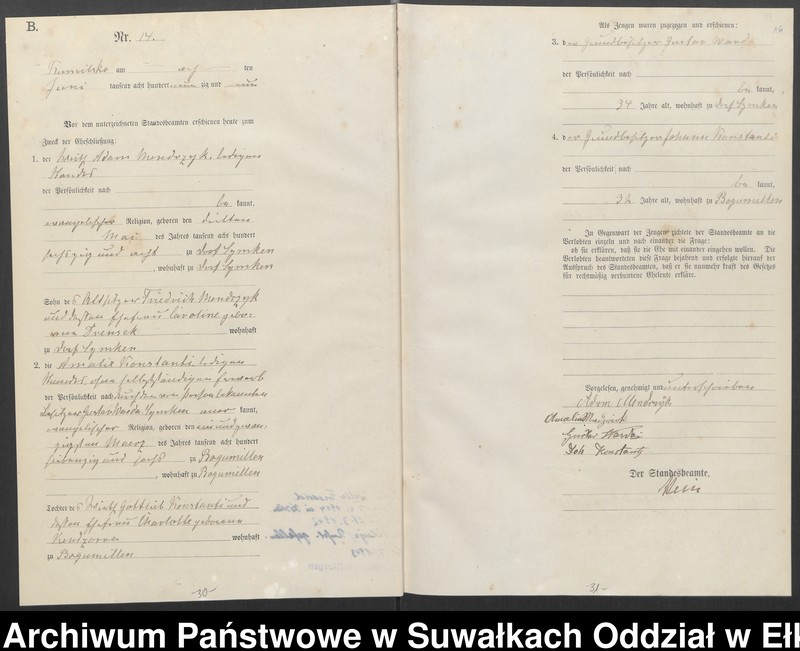 B.
Nr. 14.
Kumilsko am ten
Juni tausend acht hundert neun zig und
Vor dem unterzeichneten Standesbeamten erschienen heute zum
Zweck der Eheschließung:
1. der Wirth Adam Mondrzyk, ledigen
Standes
der Persönlichkeit nach
be kannt,
evangelischer Religion, geboren den dritten
Mai des Jahres tausend acht hundert
sechszig und acht zu Dorf Symken
, wohnhaft zu Dorf Symken
Sohn des Altsitzer Friedrich Mondrzyk
und dessen Ehefrau Caroline gebo-
rene wohnhaft
zu Dorf Symken
2. die Amalie Konstanti, ledigen
Standes, ohne selbstständigen Erwerb
der Persönlichkeit nach durch den von Person bekannten
Besitzer Gustav Warda Symken aner kannt,
evangelischer Religion, geboren den einundzwan-
zigsten Maerz des Jahres tausend acht hundert
siebenzig und sechs zu Bogumillen
, wohnhaft zu Bogumillen
Tochter des Wirth Gottlieb Konstanti und
dessen Ehefrau Charlotte geborene
wohnhaft
zu Bogumillen
-30-
Als Zeugen waren zugezogen und erschienen:
3. der Grundbesitzer Gustav Warda
der Persönlichkeit nach
be kannt,
34 Jahre alt, wohnhaft zu Dorf Symken
4. der Grundbesitzer Johann Konstanti
der Persönlichkeit nach
be kannt,
32 Jahre alt, wohnhaft zu Bogumillen
In Gegenwart der Zeugen richtete der Standesbeamte an die
Verlobten einzeln und nach einander die Frage:
ob sie erklären, daß sie die Ehe mit einander eingehen wollen. Die
Verlobten beantworteten diese Frage bejahend und erfolgte hierauf der
Ausspruch des Standesbeamten, daß er sie nunmehr kraft des Gesetzes
für rechtmäßig verbundene Eheleute erkläre.
Vorgelesen, genehmigt und unterschrieben
Adam Mondrzyk
Amalie
Gustav Warda
Joh Konstanty
Der Standesbeamte.
-31-
Archiwum Państwowe w Suwałkach Oddział w Ełk